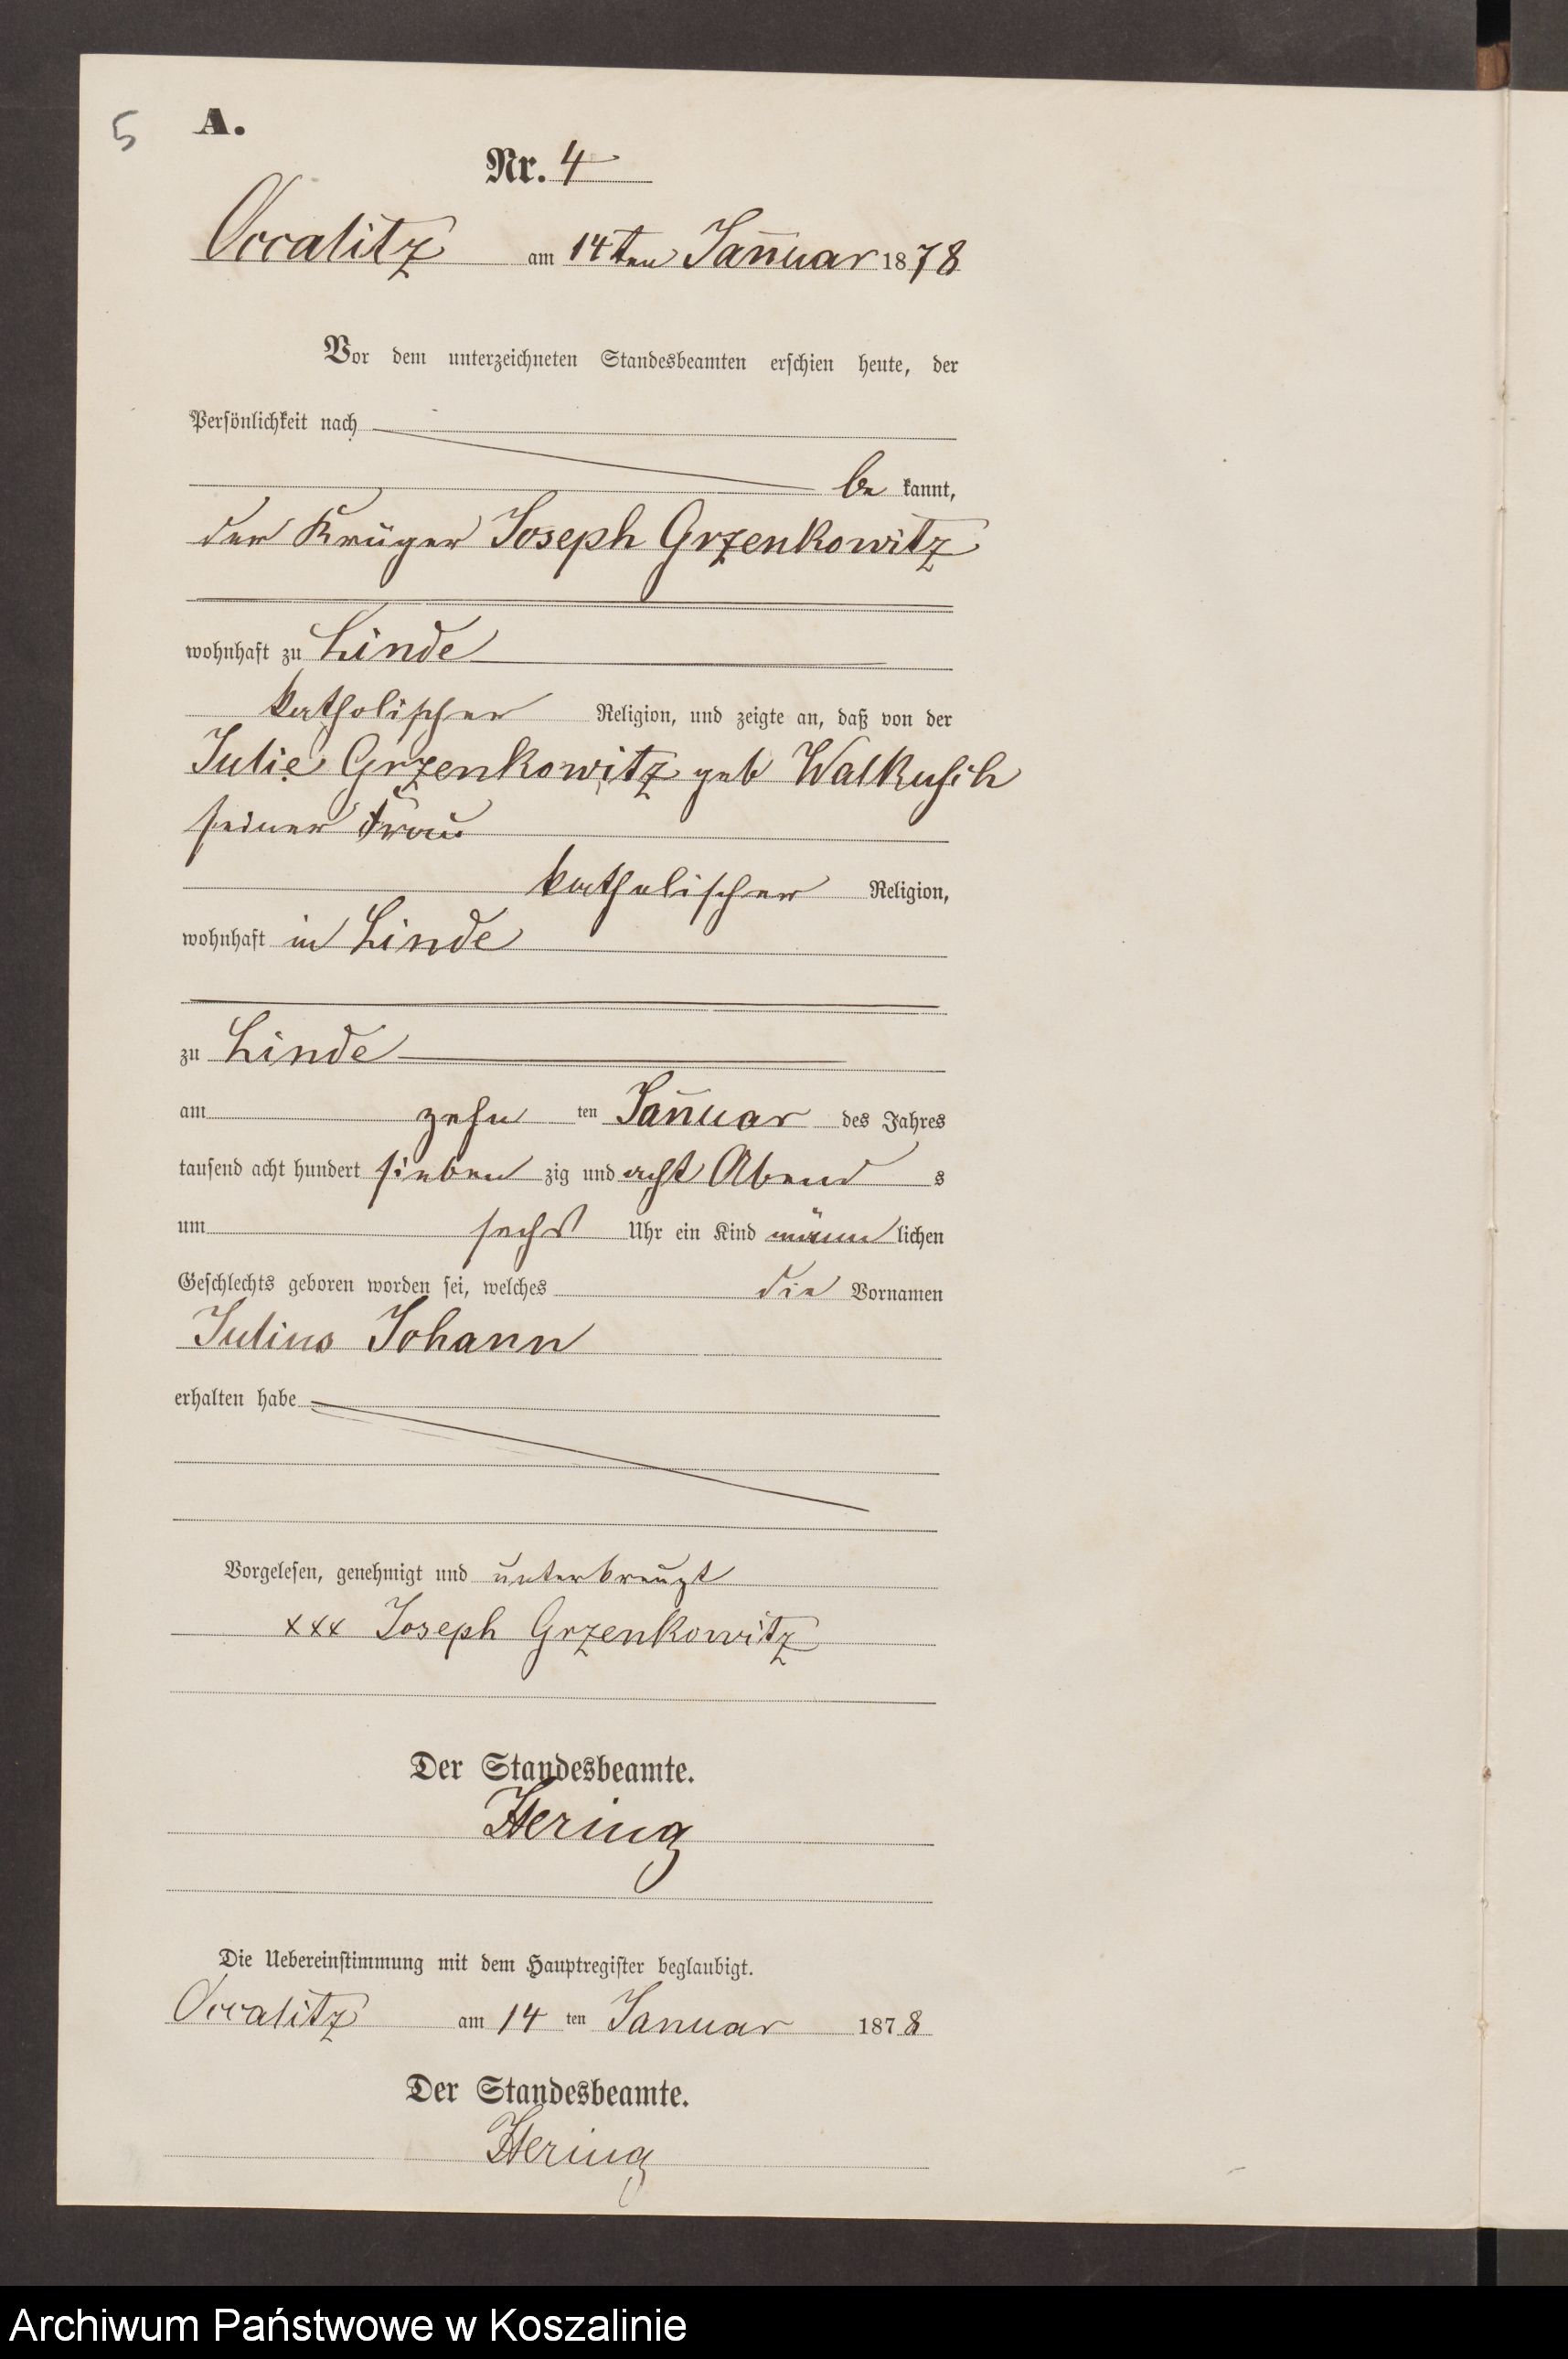 5
A.
Nr. 4
Occalitz am 14ten Januar 1878
Vor dem unterzeichneten Standesbeamten erschien heute, der
Persönlichkeit nach
be kannt,
der Krüger Joseph Grzenkowitz
wohnhaft zu Linde
katholischer Religion, und zeigte an, daß von der
Julie Grzenkowitz geb Walkusch
seiner Frau
katholischer Religion,
wohnhaft in Linde
zu Linde
am zehn ten Januar des Jahres
tausend acht hundert sieben zig und acht Abend s
um sechs Uhr ein Kind männ lichen
Geschlechts geboren worden sei, welches die Vornamen
Julius Johann
erhalten habe
Vorgelesen, genehmigt und unterkreuzt
xxx Joseph Grzenkowitz
Der Standesbeamte.
Hering
Die Uebereinstimmung mit dem Hauptregister beglaubigt.
Occalitz am 14 ten Januar 1878
Der Standesbeamte.
Hering
Archiwum Państwowe w Koszalinie